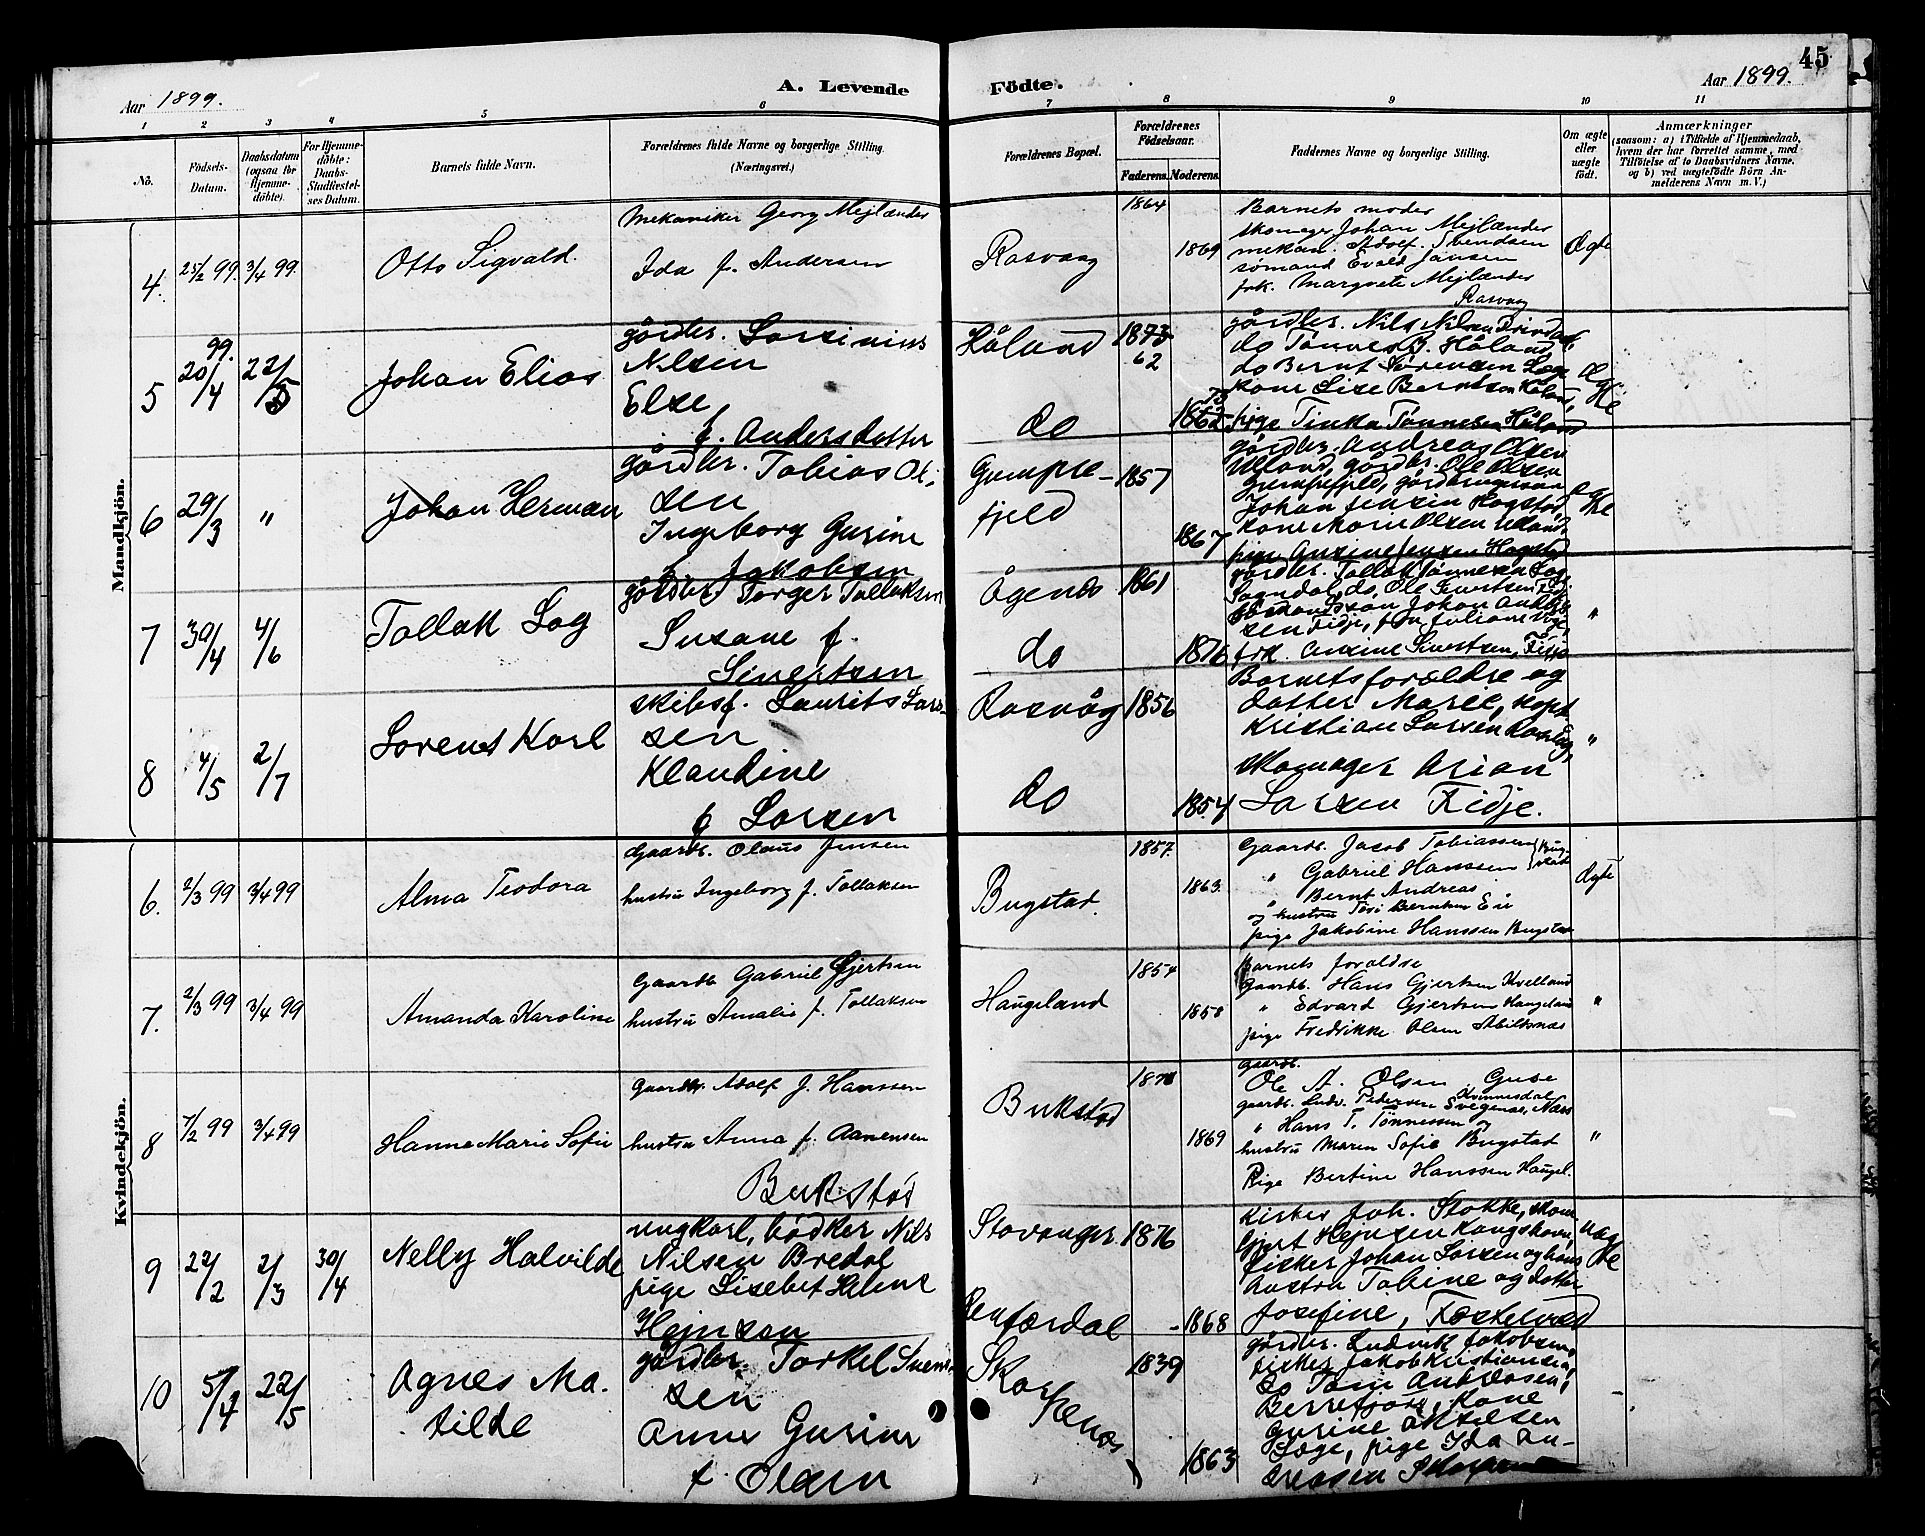 45
Aar 1899.
A. Levende
Födte.
Aar 1899.
1 2 3 4 5 6 7 8 9 10 11
No.
Födsels-
Datum.
Daabsdatum
(ogsaa for
Hjemme-
döbte).
For Hjemme-
döbte:
Daabs-
Stadfæstel-
ses Datum.
Barnets fulde Navn.
Forældrenes fulde Navne og borgerlige Stilling.
(Næringsvei.)
Forældrenes Bopæl.
Forældrenes
Födselsaar.
Faderens. Moderens.
Faddernes Navne og borgerlige Stilling.
Om ægte
eller
uægte
födt.
Anmærkninger
(saasom: a) i Tilfælde af Hjemmedaab,
hvem der har forrettet samme, med
Tilföielse af to Daabsvidners Navne,
og b) ved uægtefödte Börn An-
melderens Navn m. V.)
Mandkjön.
4. 25/2 99. 3/4 99.
Otto Sigvald.
Mekaniker Georg Mejlænder
Ida f. Andersen
Rasvaag
1864
1869
Barnets moder
skomager Johan Mejlænder
mekan. Adolf Svendsen
sømand Evald Jansen
frk. Margrete Mejlænder
Rasvaag
Ægte
5 99. 20/4 22/5
Johan Elias
gårdbr. Sørinius
Nilsen
Else,
f. Andersdatter
Håland
do
1873
62
73
1862
gårdbr. Nils Nilsen
do Tønnes B. Håland
do Bernt Sørensen
kone Lise Berntsen Håland,
pige Tinka Tønnesen Håland
Ægte
6 29/3 "
Johan Herman
gårdbr. Tobias Ol-
sen
Ingeborg Gurine
f. Jakobsen
Gumpe-
fjeld
1857
1867
gårdbr. Andreas Olsen
Uland, gårdbr. Ole Olsen
Gumpefjeld, gårdbrugersøn
Johan Jensen Hogstad,
kone Maren Olsen Uland,
pige Ansine Jensen Hogstad
Ægte
7 30/4 4/6
Tollak Log
gårdbr. Torger Tollaksen
Susane f.
Sivertsen
Ågenes
do
1861
1876
gårdbr. Tollak Tønnesen Log
Sogndal, do. Ole Sivertsen
Johan Andrea-
sen Fidje, frk Juliane
frk. Ansine Sivertsen, Fidje
"
8 4/5 2/7
Lorents Karl
skibsf. Laurits Lar-
sen
Klaudine
f Larsen
Rasvåg
do
1856
1854
Barnets forældre og
datter Marie, kapt
Kristian Larsen Rasvåg,
skomager Arian
Larsen Fidje.
"
Kvindekjön.
6. 2/3 99 3/4 99
Alma Teodora
Gaardb. Olaus Jensen
hustru Ingeborg f. Tollaksen
Bugstad.
1857.
1863.
Gaardb. Jacob Tobiassen
" Gabriel Hanssen
" Bernt Andreas
og hustru Tori Berntsen Eie
pige Jakobine Hanssen Bugstad
Ægte
7. 2/3 99 3/4 99
Amanda Karoline
Gaardb. Gabriel Gjertsen
hustru Amalie f. Tollaksen
Haugeland
1854
1858
Barnets forældre
Gaardb. Hans Gjertsen Kvelland
" Edvard Gjertsen Haugeland
pige Fredrikke Olsen Abildsnæs
"
8 7/2 99 3/4 99
Hanna Marie Sofie
Gaardb. Adolf J. Hanssen
hustru Anna f. Aanensen
Bukstad
Bukstad
1869
gaardb.
Ole A. Olsen
gaardb. Ludv. Pedersen Svegenes,
" Hans T. Tönnessen og
hustru Maren Sofie Bugstad
Pige Bertine Hanssen Haugel.
"
9 22/2 2/3 30/4
Nelly Halvilde
ungkarl, bødker Nils
Nilsen Bredal
pige Lisebet Helene
Hejnsen
Stavanger
1876
1868
Fisker Joh. Stokke,
Gjert Hejnsen Kongshavn,
fisker Johan Larsen og hans
hustru Tobine og datter
Josefine,
uæg
te
10 5/4 22/5
Agnes Ma-
tilde
gårdbr. Torkel Svend-
sen
Anne Gurine
f. Olsen
1839
1863
gårdbr. Ludvik Jakobsen,
fisker Jakob Kristiansen,
do Tom Andreasen,
Berrefjord, Kone
Gurine Akselsen
Læge, pige Ida An-
dreasen